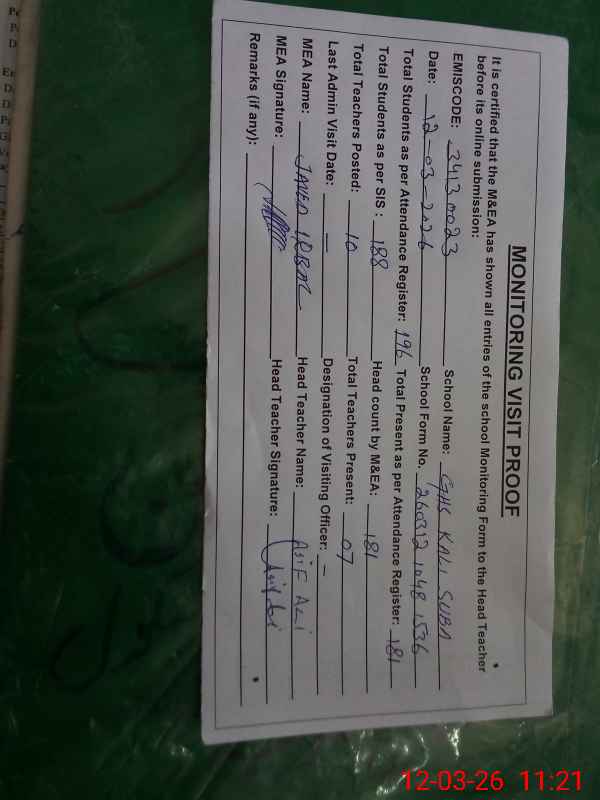 MONITORING VISIT PROOF
It is certified that the M&EA has shown all entries of the school Monitoring Form to the Head Teacher
before its online submission:
EMISCODE: 34130023 School Name: GHS KALI SUBA
Date: 12-03-2026 School Form No. 260312 1048 1536
Total Students as per Attendance Register: 196 Total Present as per Attendance Register: 181
Total Students as per SIS : 188 Head count by M&EA: 181
Total Teachers Posted: 10 Total Teachers Present: 07
Last Admin Visit Date: — Designation of Visiting Officer: –
MEA Name: JAVED IQBAL Head Teacher Name: ASIF ALI
MEA Signature: Head Teacher Signature: Asif Ali
Remarks (if any):
12-03-26 11:21